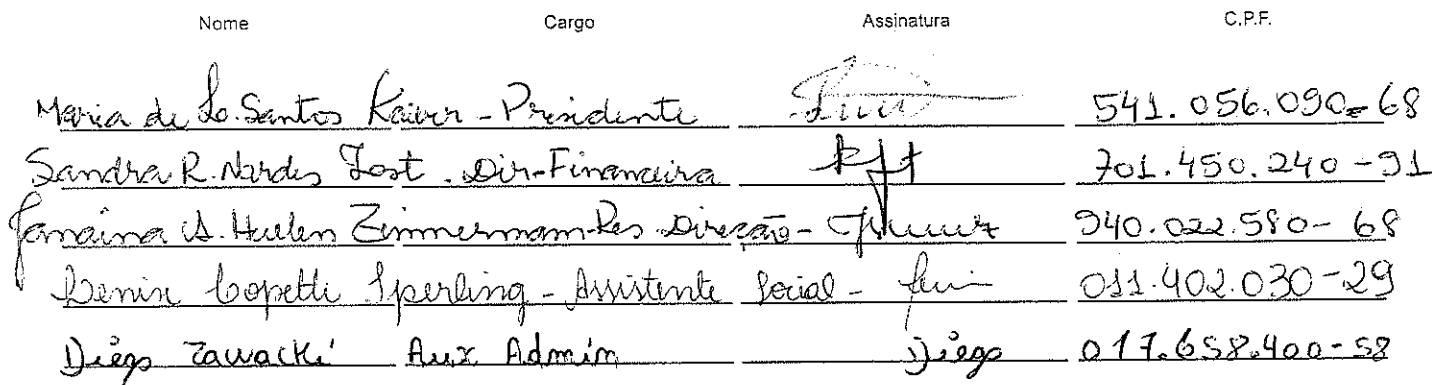 Nome Cargo Assinatura C.P.F.
Maria de Lo. Santos Kaiser - Presidente 541.056.090-68
Sandra R. Nardes Tost. Dir-Financeira 701.450.240-91
Janaína A. Hullen Zimmermam-Res Direção - 940.022.580-68
Denise Copetti Sperling - Assistente Social - 011.402.030-29
Diego Zawacki Aux Admin Diego 017.658.400-58